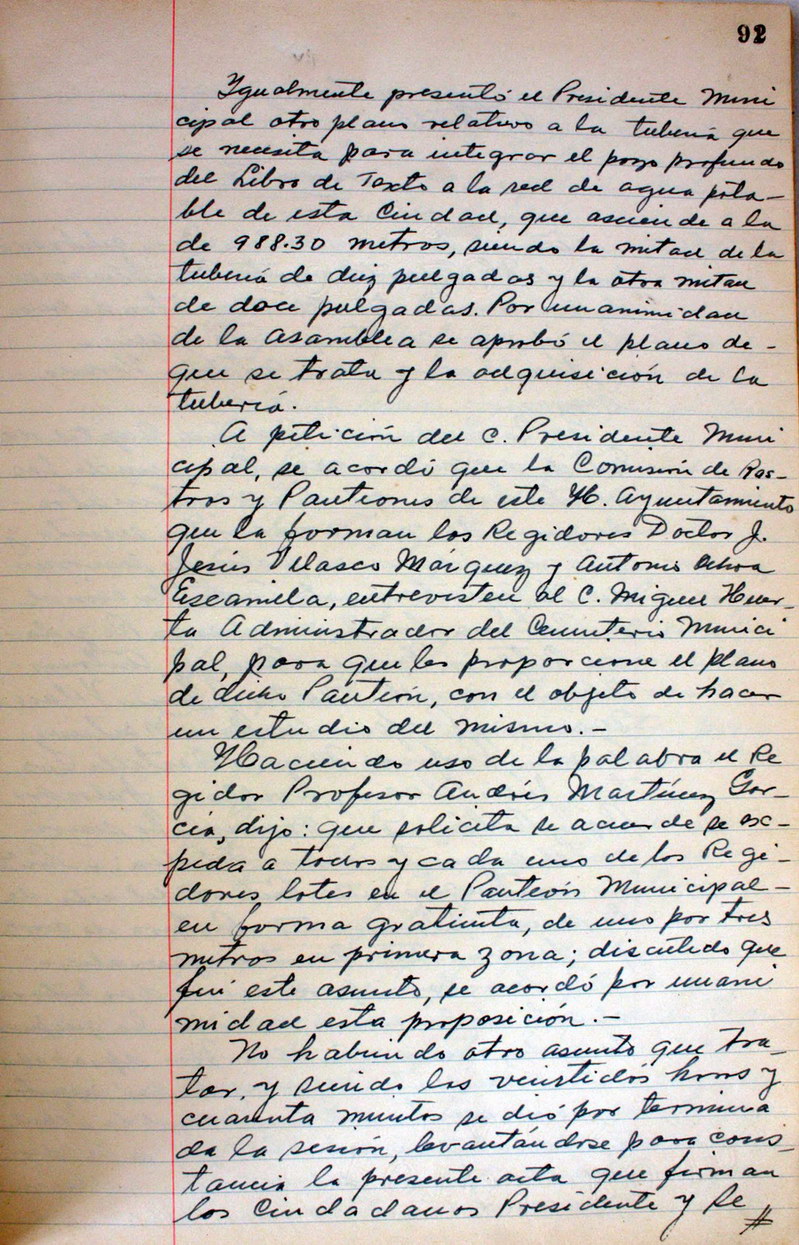 92
Ygualmente presentó el Presidente Muni
cipal otro plano relativo a la tubería que
se necesita para integrar el pozo profundo
del Libro de Texto a la red de agua pota-
ble de esta Ciudad, que asciende a la
de 988.30 metros, siendo la mitad de la
tubería de diez pulgadas y la otra mitad
de doce pulgadas. Por unanimidad
de la asamblea se aprobó el plano de-
que se trata y la adquisición de la
tubería.
A petición del C. Presidente Muni
cipal, se acordó que la Comisión de Ras-
tros y Panteones de este H. Ayuntamiento
que la forman los Regidores Doctor J.
Jesús Velasco Márquez y Antonio Ochoa
Escamilla, entrevisten al C. Miguel Huer-
ta Administrador del Cementerio Munici
pal, para que les proporcione el plano
de dicho Panteón, con el objeto de hacer
un estudio del mismo.-
Haciendo uso de la palabra el Re
gidor Profesor Andrés Martínez Gar-
cía, dijo: que solicita se acuerde se ex-
pida a todos y cada uno de los Regi-
dores lotes en el Panteón Municipal-
en forma gratuita, de uno por tres
metros en primera zona; discutido que
fué este asunto, se acordó por unani
midad esta proposición.-
No habiendo otro asunto que tra-
tar, y siendo las veintidós horas y
cuarenta minutos se dió por termina
da la sesión, levantándose para cons-
tancia la presente acta que firman
los Ciudadanos Presidente y Se